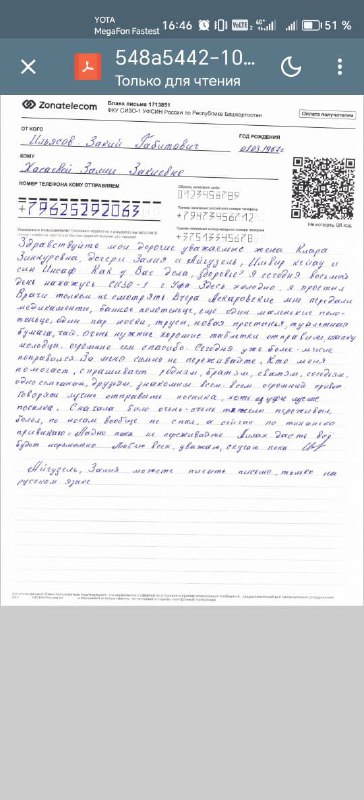 YOTA
MegaFon Fastest
16:46
51 %
548a5442-10...
Только для чтения
Zonatelecom
Бланк письма 1713851
ФКУ СИЗО-1 УФСИН России по Республике Башкортостан
Оплата получателем
ОТ КОГО
ГОД РОЖДЕНИЯ
Ильясов Закий Габитович
01.03.1967г
КОМУ
Хасаевой Залии Закиевне
НОМЕР ТЕЛЕФОНА КОМУ ОТПРАВЛЯЕМ
Образец написания цифр
0123456789
+79625292063
+79473456712
+37513345678
Не портить QR код
Здравствуйте мои дорогие уважаемые жена Клара
Зиннуровна, дочери Залия и Айгузель, Ильвир кейәү и
сын Инсаф. Как у Вас дела, здоровье? Я сегодня восьмой
день нахожусь СИЗО-1 г Уфа. Здесь холодно, я простыл
Врачи толком не смотрять Вчера лекаровские мне передали
медикаменты, банное полотенце, еще один маленькие поло-
тенце, один пар носки, труси, новая простынья, туалетная
бумага, чай. Очень нужные хорошие таблетки отправили,
молодцы, огромное им спасибо. Сегодня уже более-менее
поправился За меня сильно не переживайте. Кто меня
помогает, спрашивает родным, братям, сватям, соседям,
односельчанам, друзям, знакомим всем-всем огромный привет
Говорят лучше отправить посилка,
посилка. Сначала было очень-очень тяжело переживал,
болел, по ночам вообще не спал, а сейчас по тихонько
привикаю. Ладно пока не переживайте. Аллах даст всё
будет нормально Люблю всех, уважаю, скучаю пока
Айгузель, Залия можете писать письмо, только на
русском языке